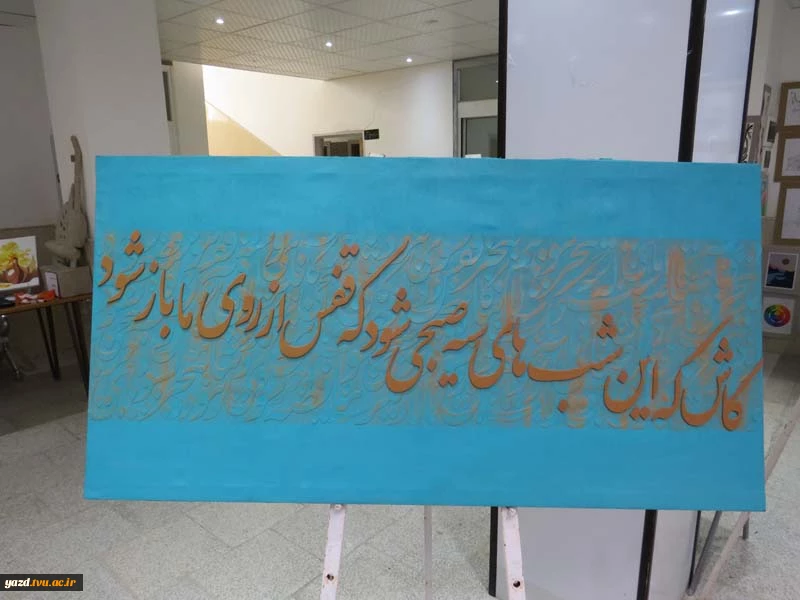 کاش که این شب های سیه صبحی شود که قفس از روی ما باز شود
yazd.tvu.ac.ir